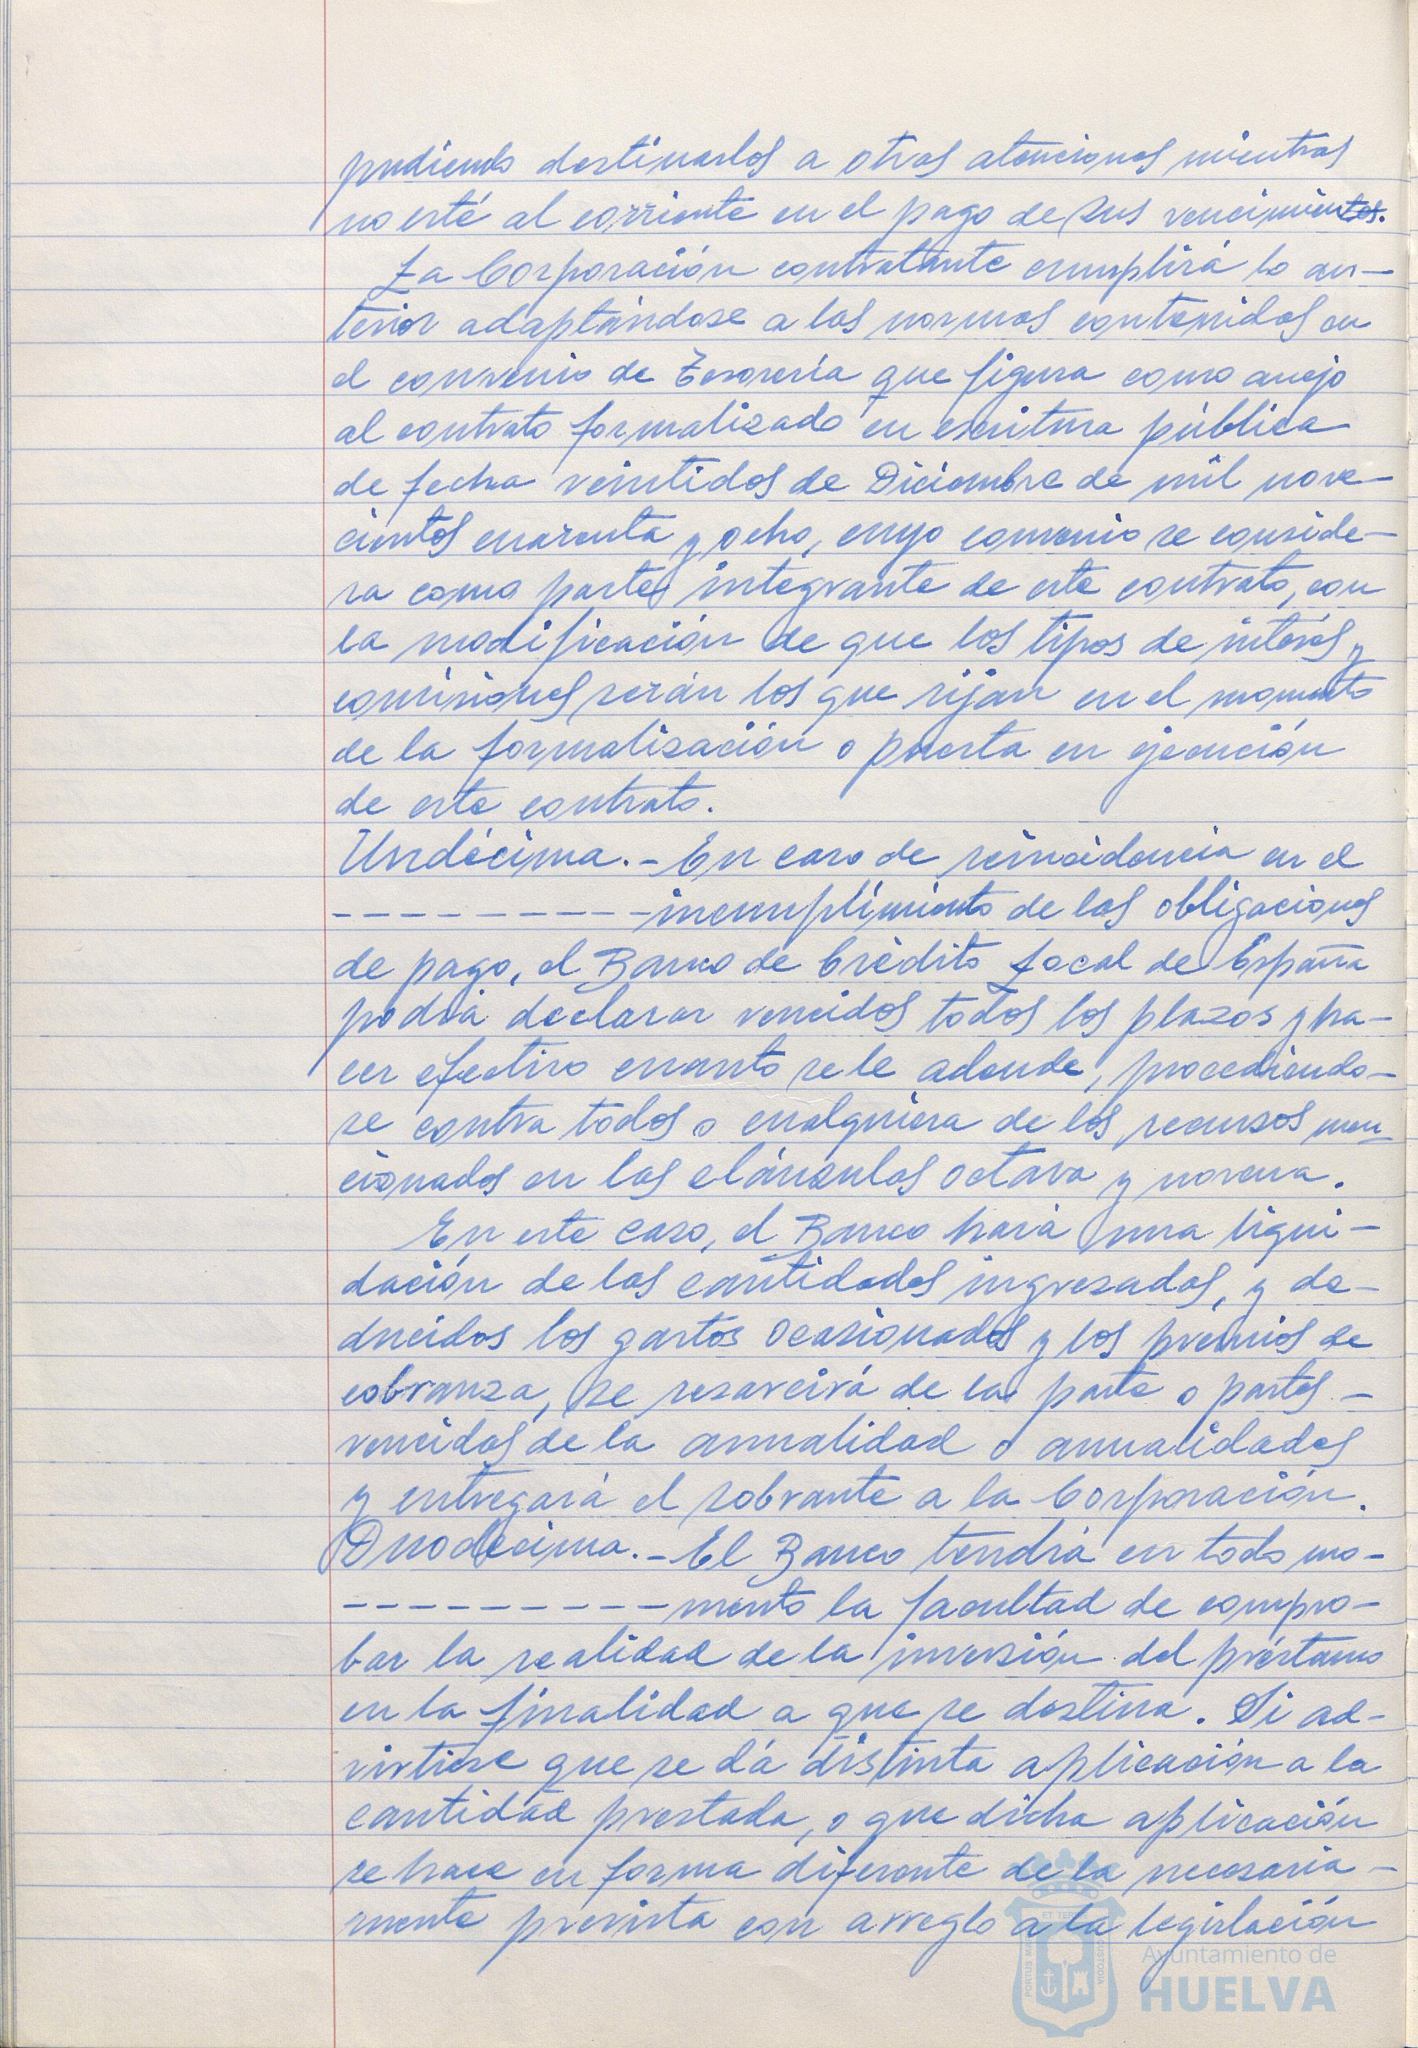 pudiendo destinarlos a otras atenciones mientras
no esté al corriente en el pago de sus vencimientos.
La Corporación contratante cumplirá lo an-
terior adaptándose a las normas contenidas en
el convenio de Tesorería que figura como anejo
al contrato formalizado en escritura pública
de fecha veintidos de Diciembre de mil nove-
cientos cuarenta y ocho, cuyo convenio se conside-
ra como parte integrante de este contrato, con
la modificación de que los tipos de interés y
comisiones serán los que rijan en el momento
de la formalización o puesta en ejecución
de este contrato.
Undécima.- En caso de reincidencia en el
- - - - - - - - - - incumplimiento de las obligaciones
de pago, el Banco de Crédito Local de España
podrá declarar vencidos todos los plazos y ha-
cer efectivo cuanto se le adeude, procediendo-
se contra todos o cualquiera de los recursos men-
cionados en las cláusulas octava y novena.
En este caso, el Banco hará una liqui-
dación de las cantidades ingresadas, y de-
ducidos los gastos ocasionados y los premios de
cobranza, se resarcirá de la parte o partes -
vencidas de la anualidad o anualidades
y entregará el sobrante a la Corporación.
Duodecima.- El Banco tendrá en todo mo-
- - - - - - - - - - mento la facultad de compro-
bar la realidad de la inversión del préstamo
en la finalidad a que se destina. Si ad-
virtiese que se dá distinta aplicación a la
cantidad prestada, o que dicha aplicación
se hace en forma diferente de la necesaria-
mente prevista con arreglo a la legislación
Ayuntamiento de
HUELVA